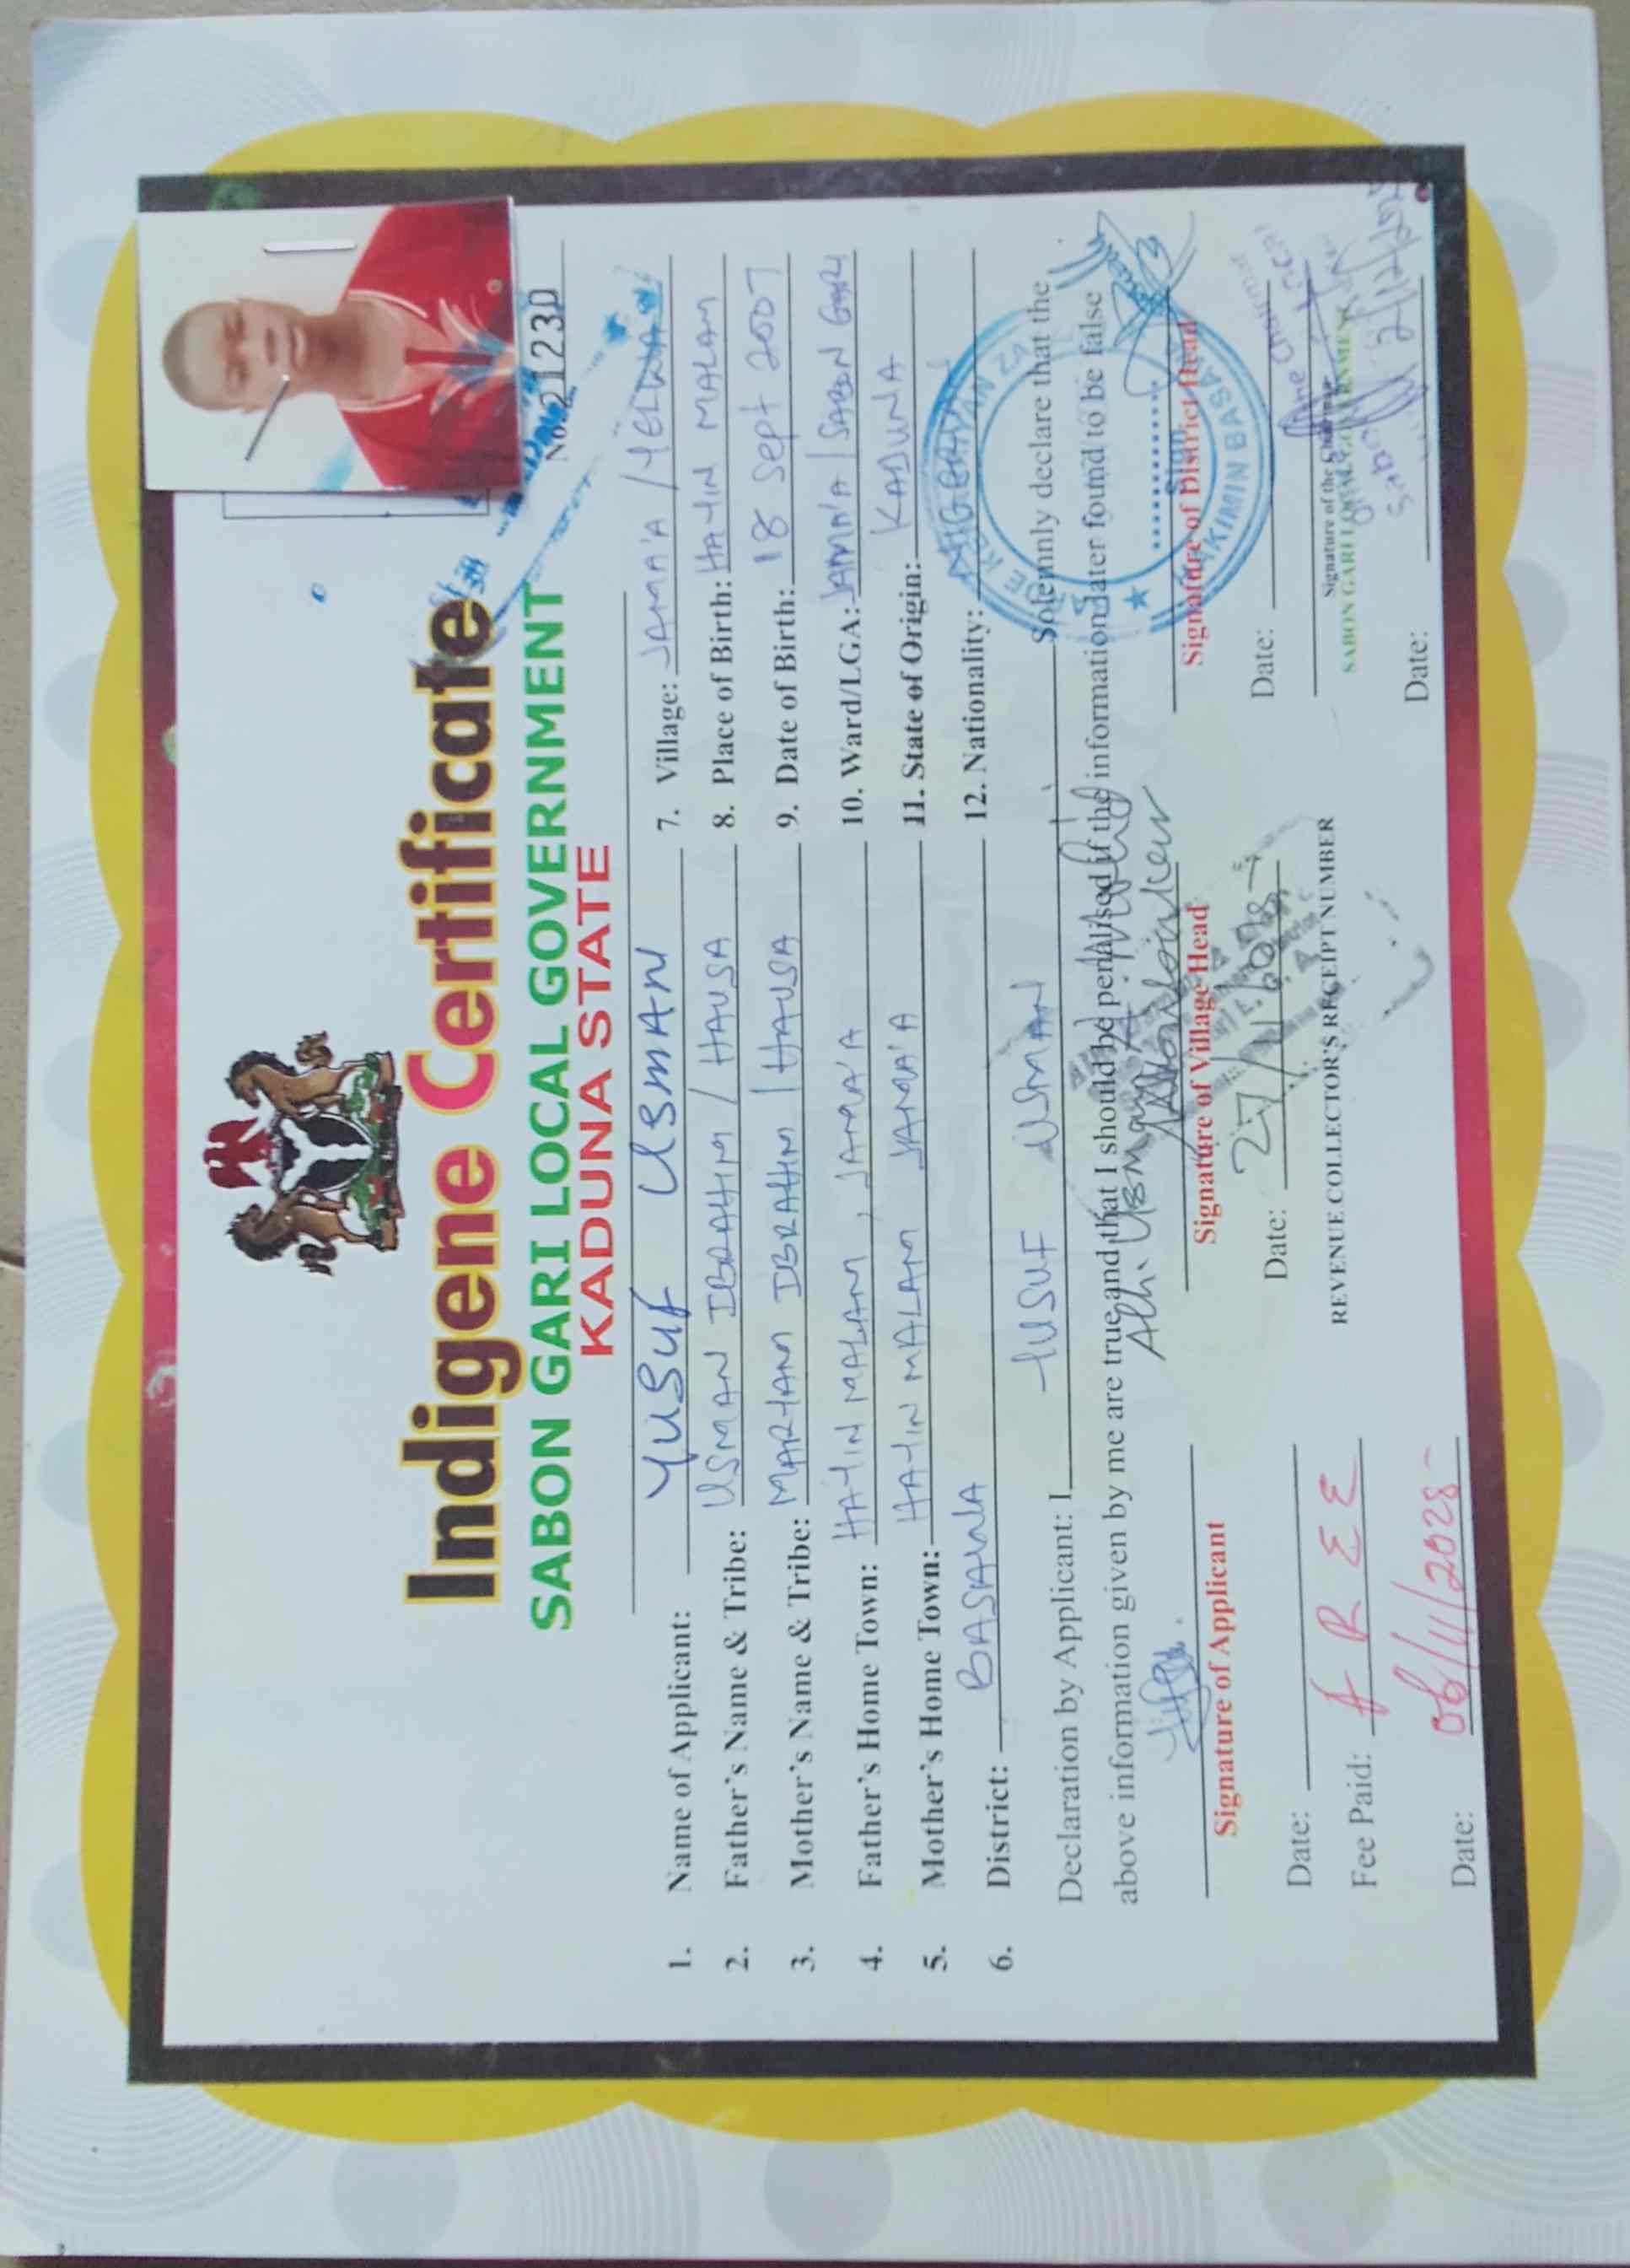 No. 21230
Indigene Certificate
SABON GARI LOCAL GOVERNMENT
KADUNA STATE
1. Name of Applicant: YUSUF USMAN
2. Father's Name & Tribe: USMAN IBRAHIM / HAUSA
3. Mother's Name & Tribe: MARYAM IBRAHIM / HAUSA
4. Father's Home Town: HAYIN MALAM, JAMA'A
5. Mother's Home Town: HAYIN MALAM JAMA'A
6. District: BASAWA
7. Village: JAMA'A / YELWA
8. Place of Birth: HAYIN MALAM
9. Date of Birth: 18 Sept 2007
10. Ward/LGA: JAMA'A / SABON GARI
11. State of Origin: KADUNA
12. Nationality: NIGERIAN
Declaration by Applicant: I YUSUF USMAN Solemnly declare that the
above information given by me are true and that I should be penalised if the information later found to be false
Signature of Applicant
Date:
Fee Paid: FREE
Date: 06/11/2025
Alh. Usman
Signature of Village Head
Date: 27/10/025
REVENUE COLLECTOR'S RECEIPT NUMBER
HAKIMIN BASAWA
Sign
Signature of District Head
Date:
Signature of the Chairman
SABON GARI LOCAL GOVERNMENT
Date: 2/12/2025